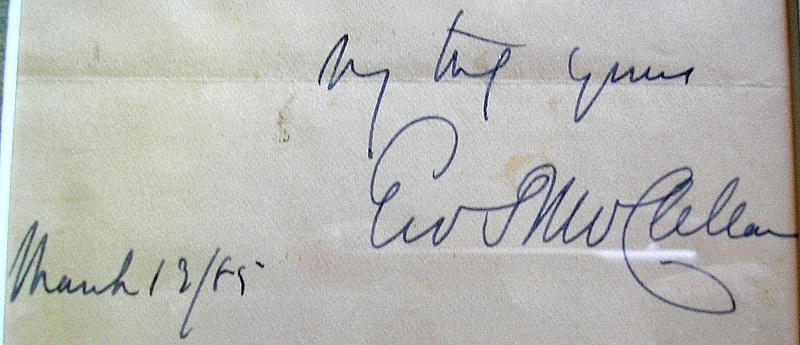 Very truly yours
Geo B McClellan
March 13/85